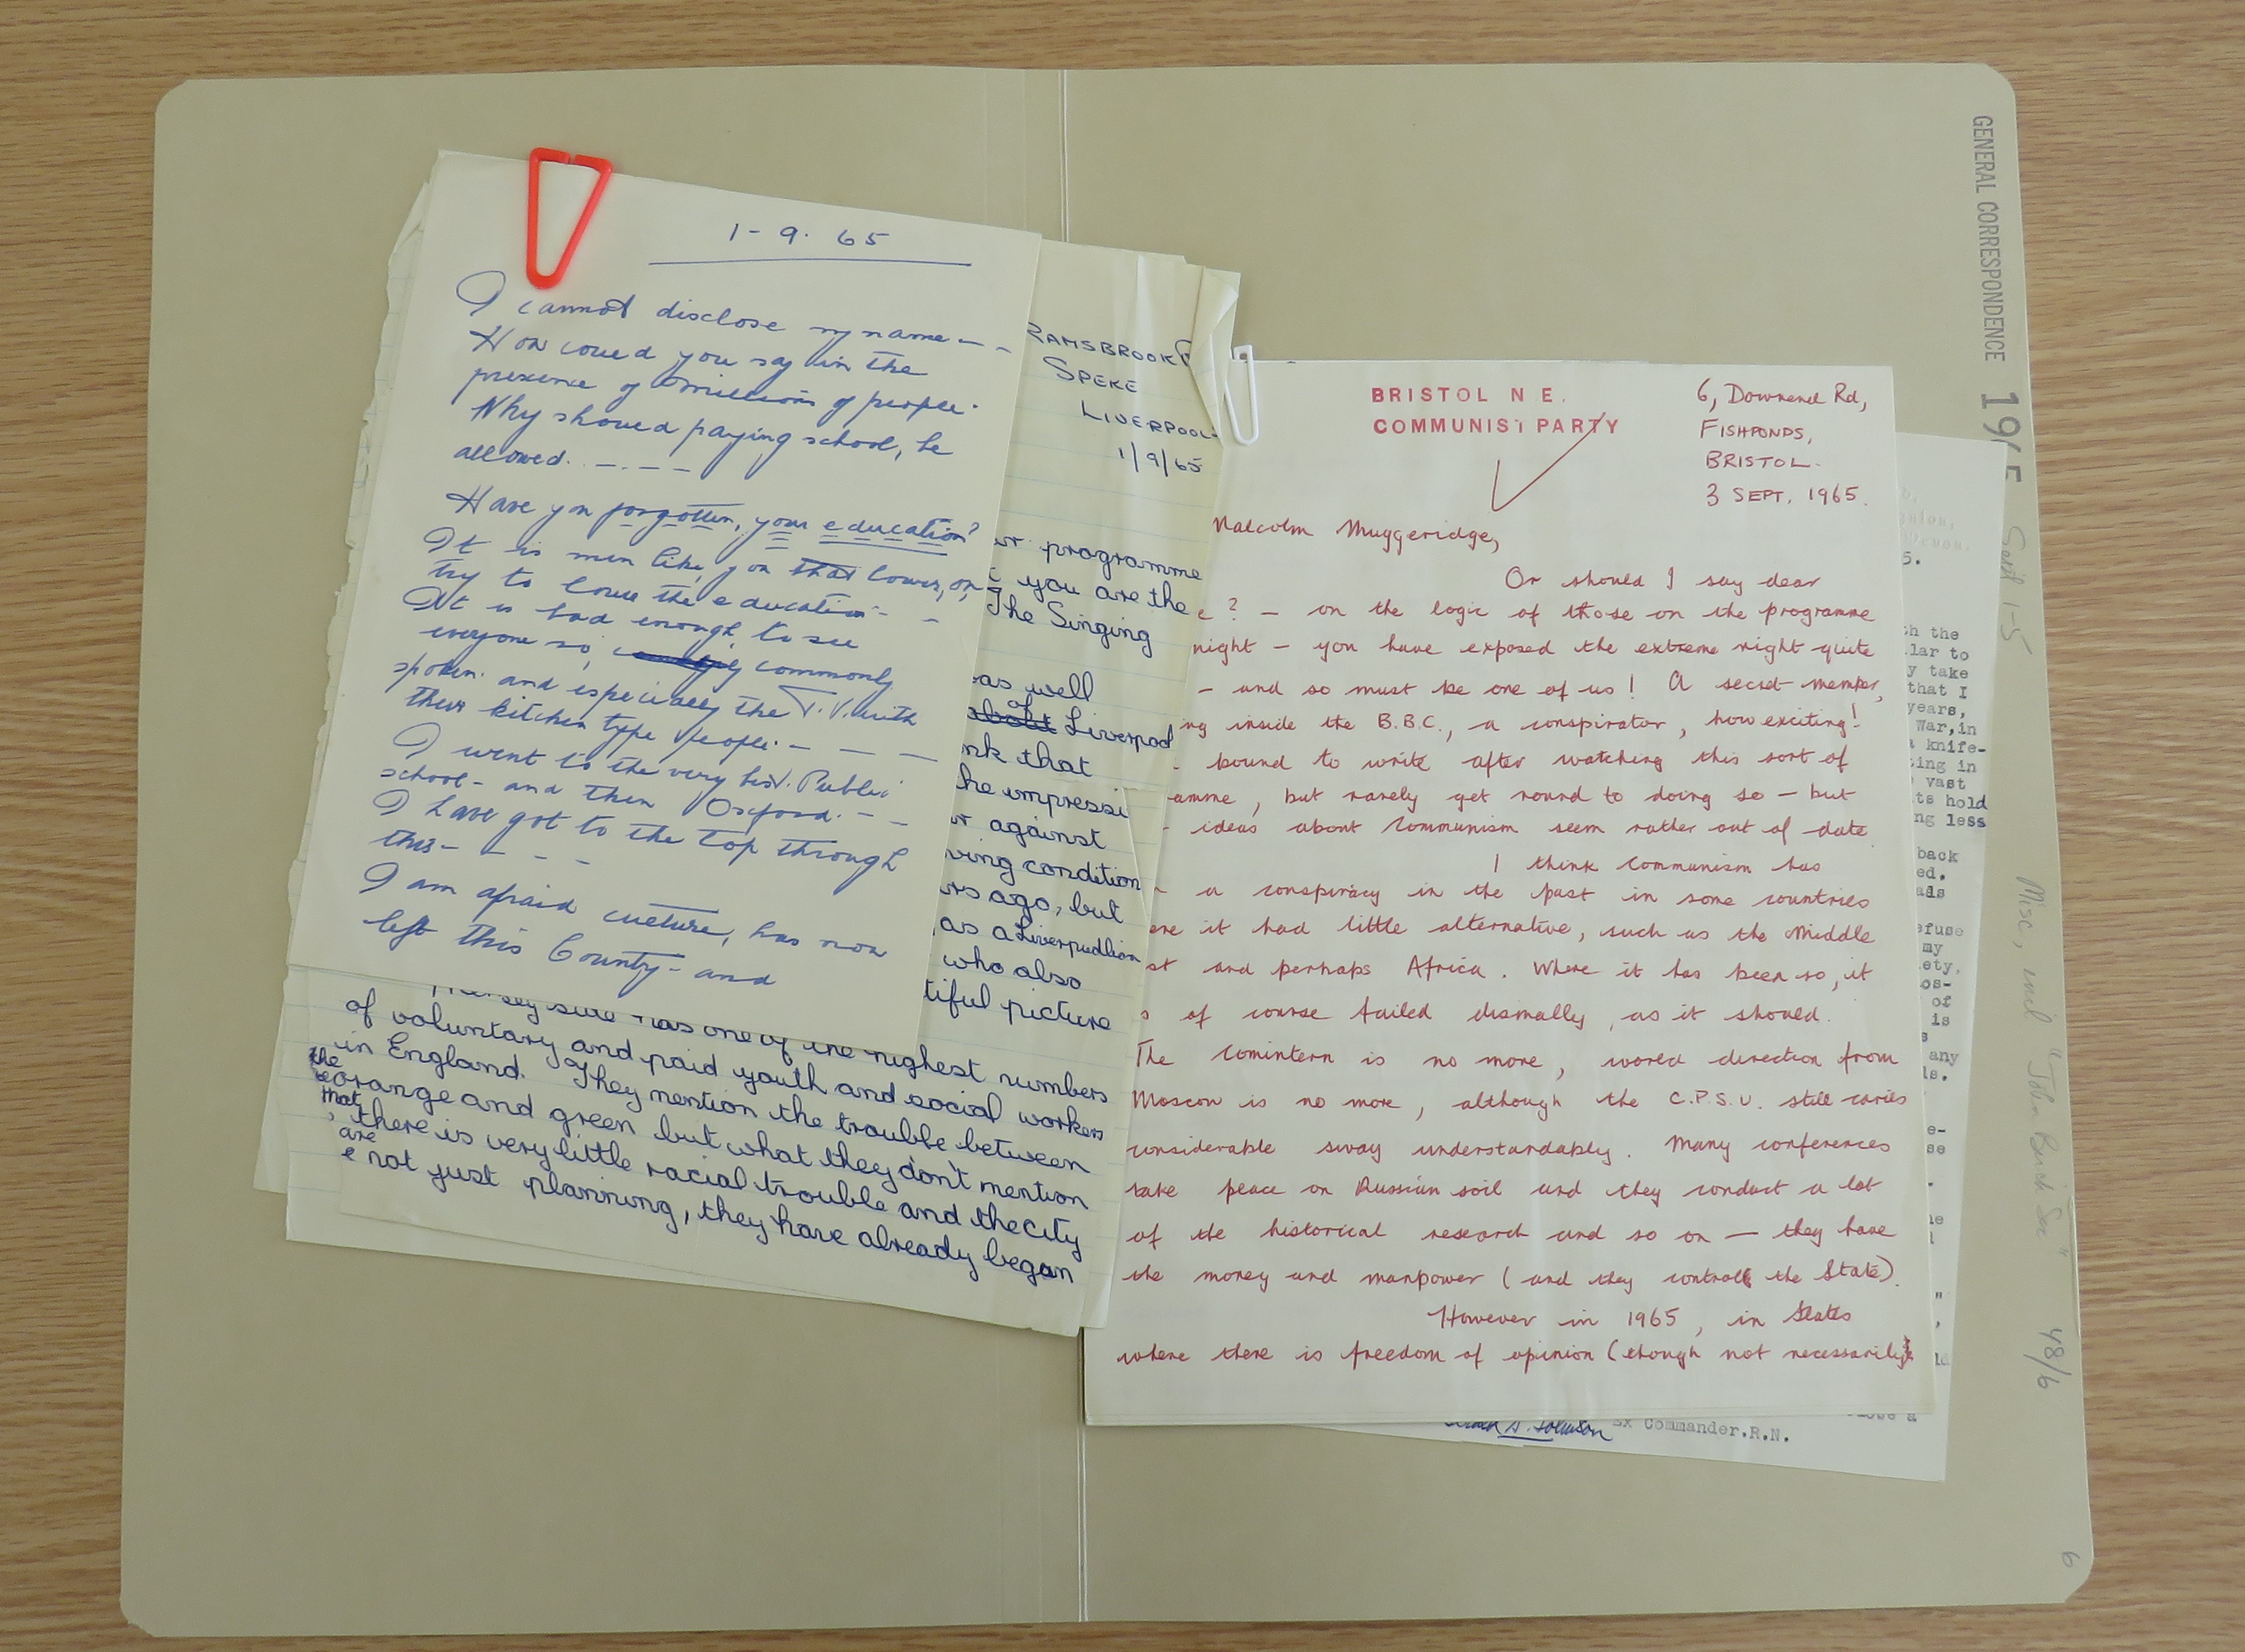 1-9.65
I cannot disclose my name - -
How coued you say in the
presence of millions of people.
Why shoued paying school, be
allowed. - - - -
Have you forgotten, your education?
It is men like you that lower, or,
try to lower the education - -
It is bad enough, to see
everyone so, commonly
spoken. and especially the T.V. with
their kitchen type people. - - -
I went to the very best. Public
school - and then Oxford. - -
I have got to the top through
this - - - -
I am afraid cueture, has now
left this County - and
RAMSBROOK
SPEKE
LIVERPOOL
1/9/65
programme
you are the
The Singing
as well
of
about Liverpool
that
the impressi
against
condition
ago, but
as a Liverpudlian
who also
picture
has one of the highest numbers
of voluntary and paid youth and social workers
in England. They mention the trouble between
the orange and green but what they don't mention
that there is very little racial trouble and the city
are not just planning, they have already began
BRISTOL N E.
COMMUNIST PARTY
6, Downend Rd,
FISHPONDS,
BRISTOL.
3 SEPT. 1965.
Malcolm Muggeridge,
Or should I say dear
e? - on the logic of those on the programme
night - you have exposed the extreme right quite
- and so must be one of us! A secret member,
ng inside the B.B.C., a conspirator, how exciting!
bound to write after watching this sort of
amme, but rarely get round to doing so - but
ideas about Communism seem rather out of date
I think Communism has
a conspiracy in the past in some countries
ere it had little alternative, such as the Middle
st and perhaps Africa. Where it has been so, it
s of course failed dismally, as it should.
The Comintern is no more, world direction from
Moscow is no more, although the C.P.S.U. still carries
considerable sway understandably. Many conferences
take peace on Russian soil and they conduct a lot
of the historical research and so on - they have
the money and manpower (and they control the State).
However in 1965, in States
where there is freedom of opinion (though not necessarily
5.
th the
lar to
y take
that I
years,
War, in
a knife-
ing in
vast
ts hold
ng less
back
ed.
efuse
my
ety,
os-
of
is
any
ls.
Ex Commander.R.N.
GENERAL CORRESPONDENCE 1965 Sept 1-5 Misc, incl "John Birch Soc" 48/6
6